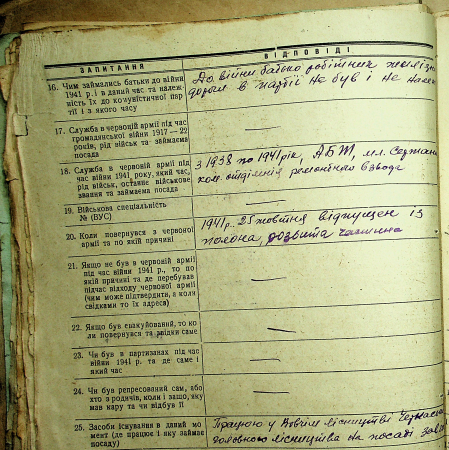 ЗАПИТАННЯ
ВІДПОВІДІ
16. Чим займались батьки до війни
1941 р. і в даний час та належ
ність їх до комуністичної пар
тії і з якого часу
До війни батько робітник залізн
дороги в партії не був і не
17. Служба в червоній армії під час
громадянської війни 1917 — 22
років, рід військ та займаєма
посада
18. Служба в червоній армії під
час війни 1941 року, який час,
рід військ, останнє військове
звання та займаєма посада
з 1938 по 1941 рік, мл. Сержант
ком. отділенія ремонтного взвода
19. Військова спеціяльність
№ (ВУС)
20. Коли повернувся з червоної
армії та по якій причині
1941 р. 25 жовтня відпущен із
полона,
21. Якщо не був в червоній армії
під час війни 1941 р., то по
якій причині та де перебував
підчас відходу червоної армії
(чим може підтвердити, а коли
свідками то їх адреса)
22. Якщо був евакуйований, то ко
ли повернувся та звідки саме
23. Чи був в партизанах під час
війни 1941 р. та де саме і
який час
24. Чи був репресований сам, або
хто з родичів, коли і защо, яку
мав кару та чи відбув її
25. Засоби існування в даний мо
мент (де працює і яку займає
посаду)
Працюю у лісництві
лісництва на посаді